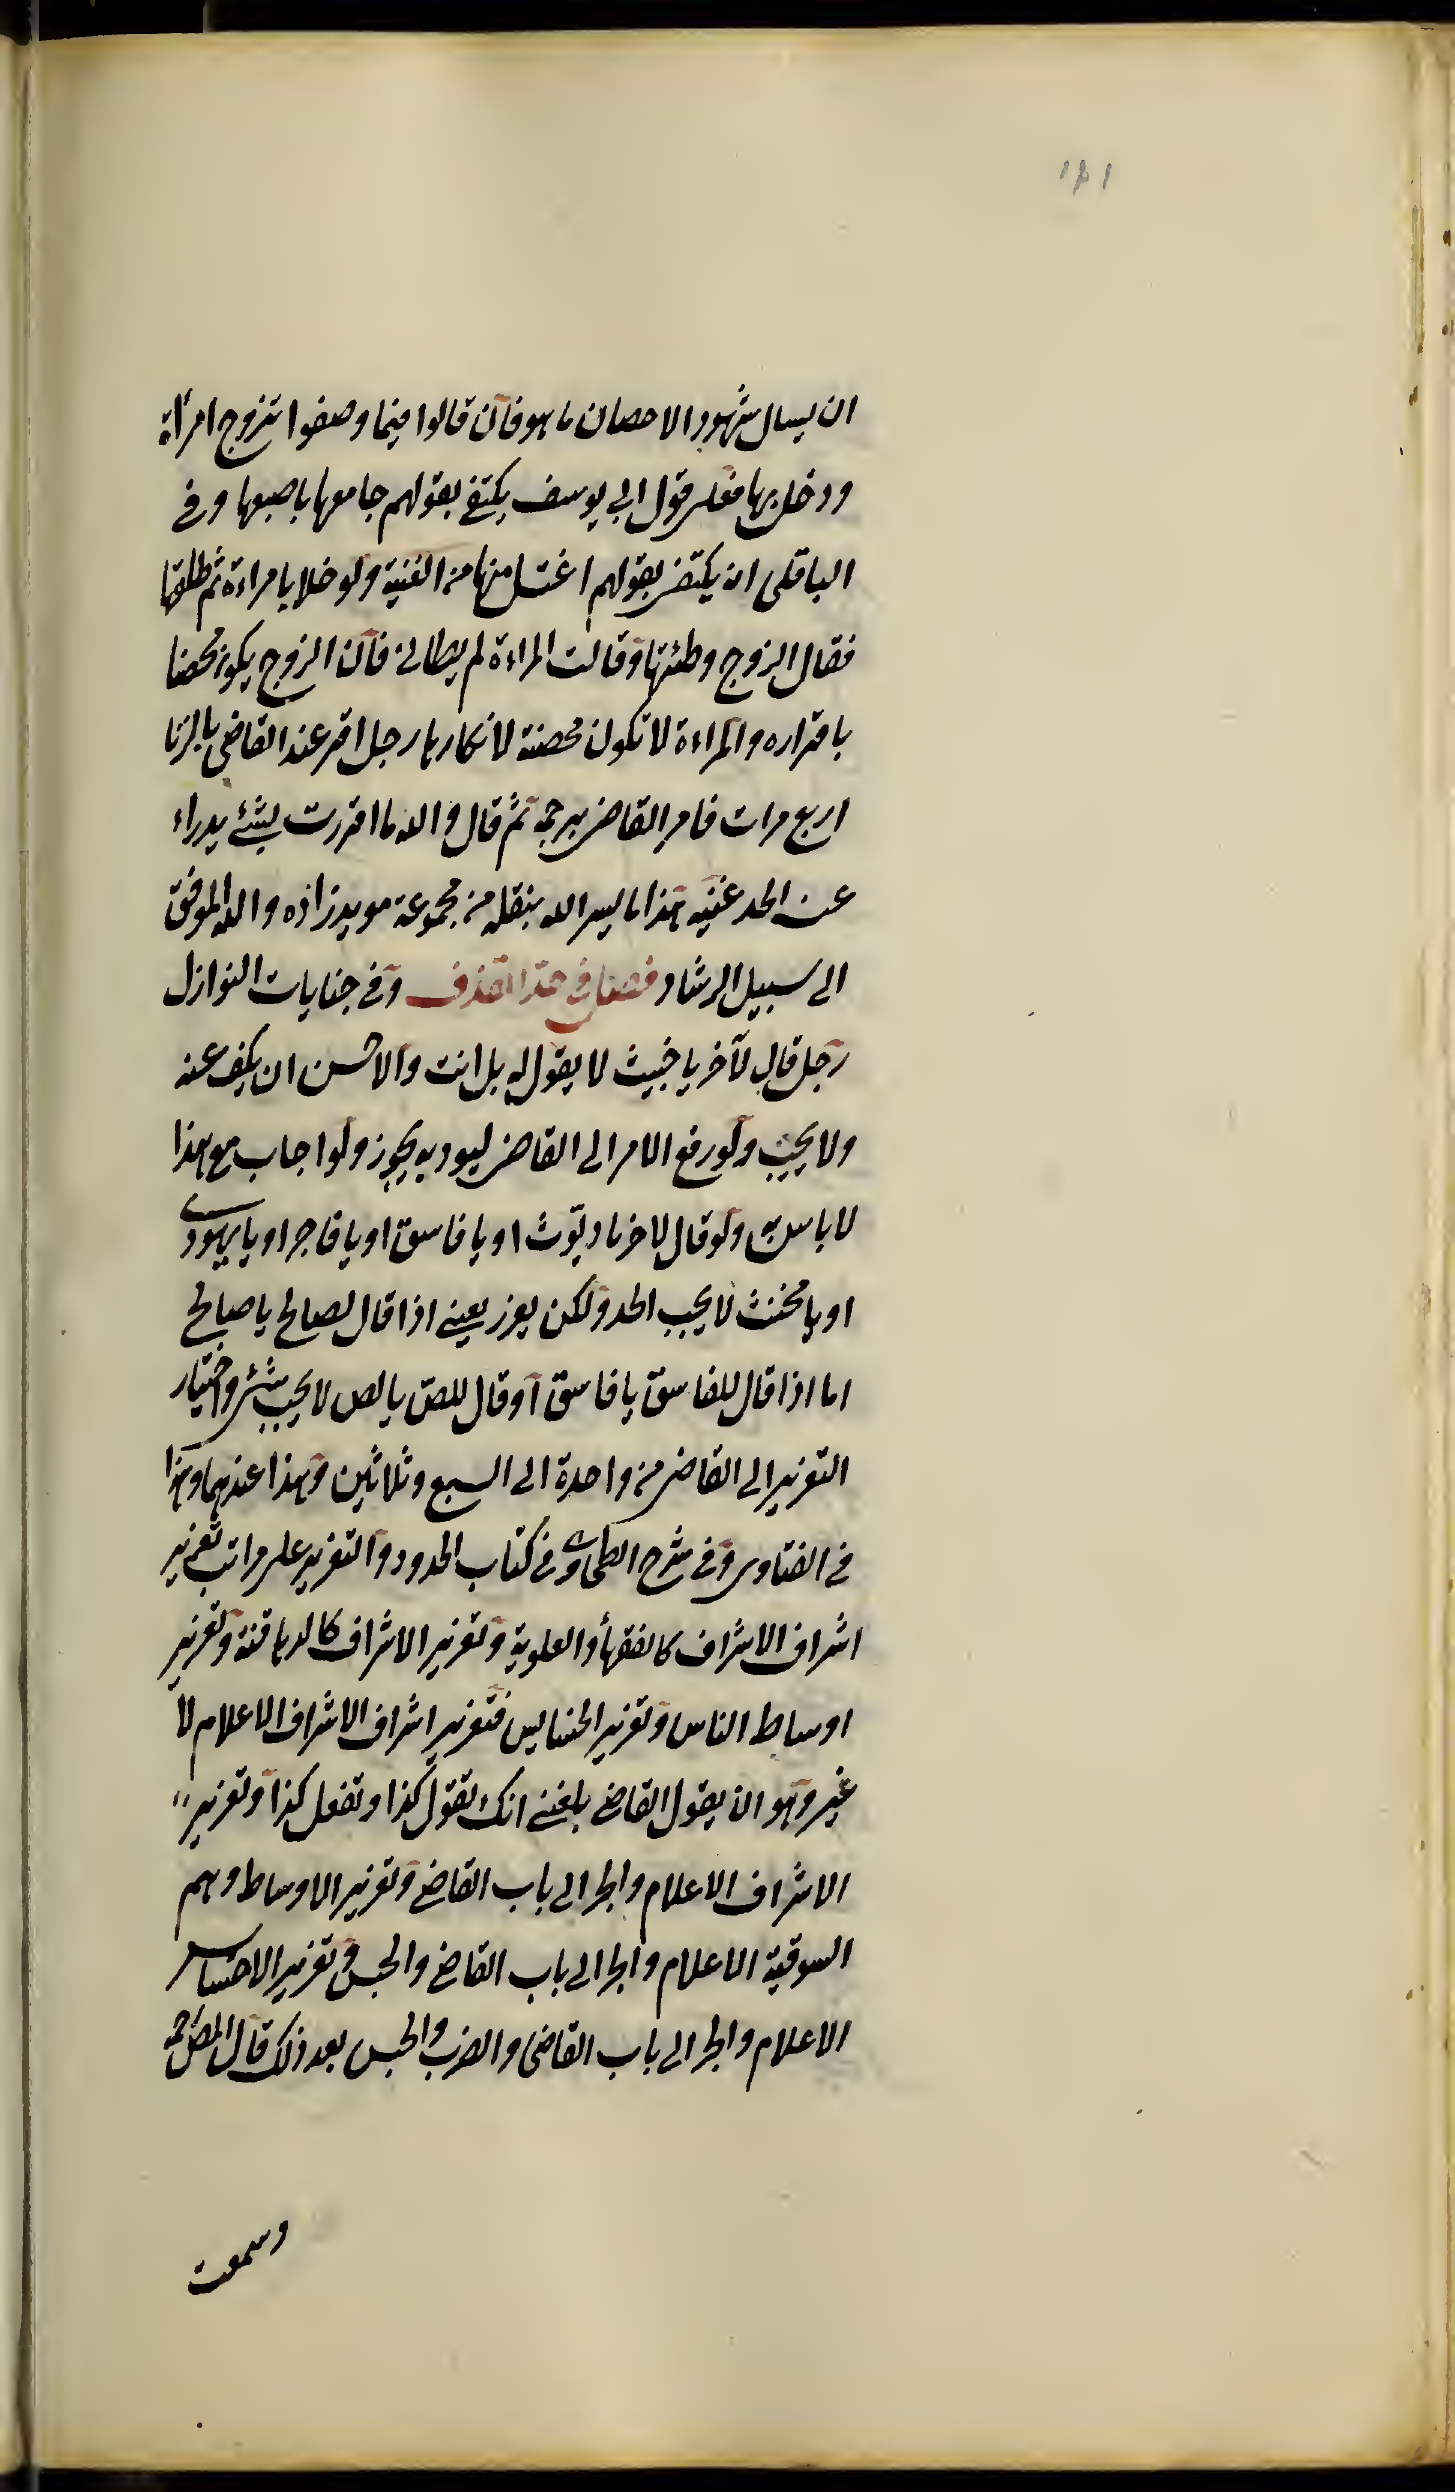 ان يسال شهود الاحصان ما هو فان قالوا فيما وصفوا تزوج امرأة
ودخل بها فعلى قول ابي يوسف يكتفى بقولهم جامعها باصبعها وفى
الباقلى ان يكتفى بقولهم اغتسل منها من الغنية ولو خلا بامراءة ثم طلقها
فقال الزوج وطئتها وقالت المراءة لم يطائنى فان الزوج يكون محصنا
باقراره والمراءة لا تكون محصنة لانكارها رجل اقر عند القاضى بالزنا
اربع مرات فامر القاضى برجمه ثم قال والله ما اقررت بشئ يدراء
عن الحد غنيه هذا ما يسر الله بنقله من مجموعة مويد زاده والله الموفق
الى سبيل الرشاد فصل فى حد القذف وفى جنايات النوازل
رجل قال لآخر يا خبيث لا يقول له بل انت والاحسن ان يكف عنه
ولا يجيب ولو رفع الامر الى القاضى ليودبه يجوز ولو اجاب مع هذا
لا باس به ولو قال لاخر يا ديوث او يا فاسق او يا فاجر او يا يهودى
او يا مخنث لا يجب الحد ولكن يعزر يعنى اذا قال لصالح يا صالح
اما اذا قال للفاسق يا فاسق او قال للص يا لص لا يجب شئ واختيار
التعزير الى القاضى من واحدة الى السبع وثلاثين وهذا عندهما وهذا
فى الفتاوى وفى شرح الطحاوى فى كتاب الحدود والتعزير على مراتب تعزير
اشراف الاشراف كالفقهأ والعلوية وتعزير الاشراف كالدهاقنة وتعزير
اوساط الناس وتعزير الخسايس فتعزير اشراف الاشراف الاعلام لا
غير وهو ان يقول القاضى بلغنى انك تقول كذا وتفعل كذا وتعزير
الاشراف الاعلام والجر الى باب القاضى وتعزير الاوساط وهم
السوقية الاعلام والجر الى باب القاضى والحبس وتعزير الاخساس
الاعلام والجر الى باب القاضى والضرب والحبس بعد ذلك قال المص رحمه
وسمعت